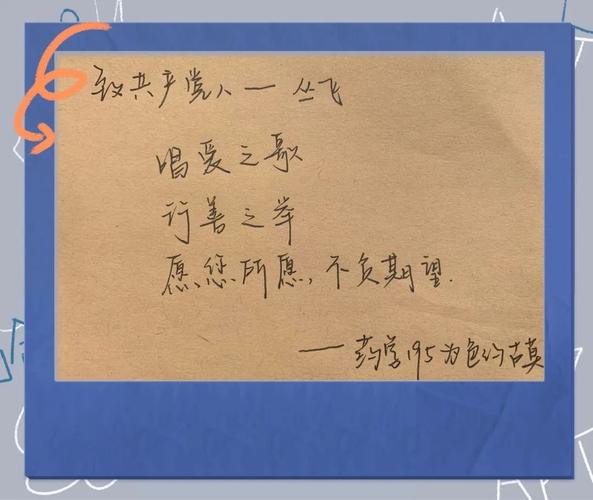 致共产党人一丛飞
唱爱之歌
行善之举
愿您所愿,不负期望.
——药学195